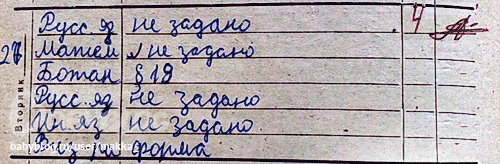 Русс. яз не задано 4
Матем л не задано
27
Ботан § 18
Русс. яз не задано
Ин. яз не задано
Вторник
Физ-ра форма
babyblog.ru/user/makka